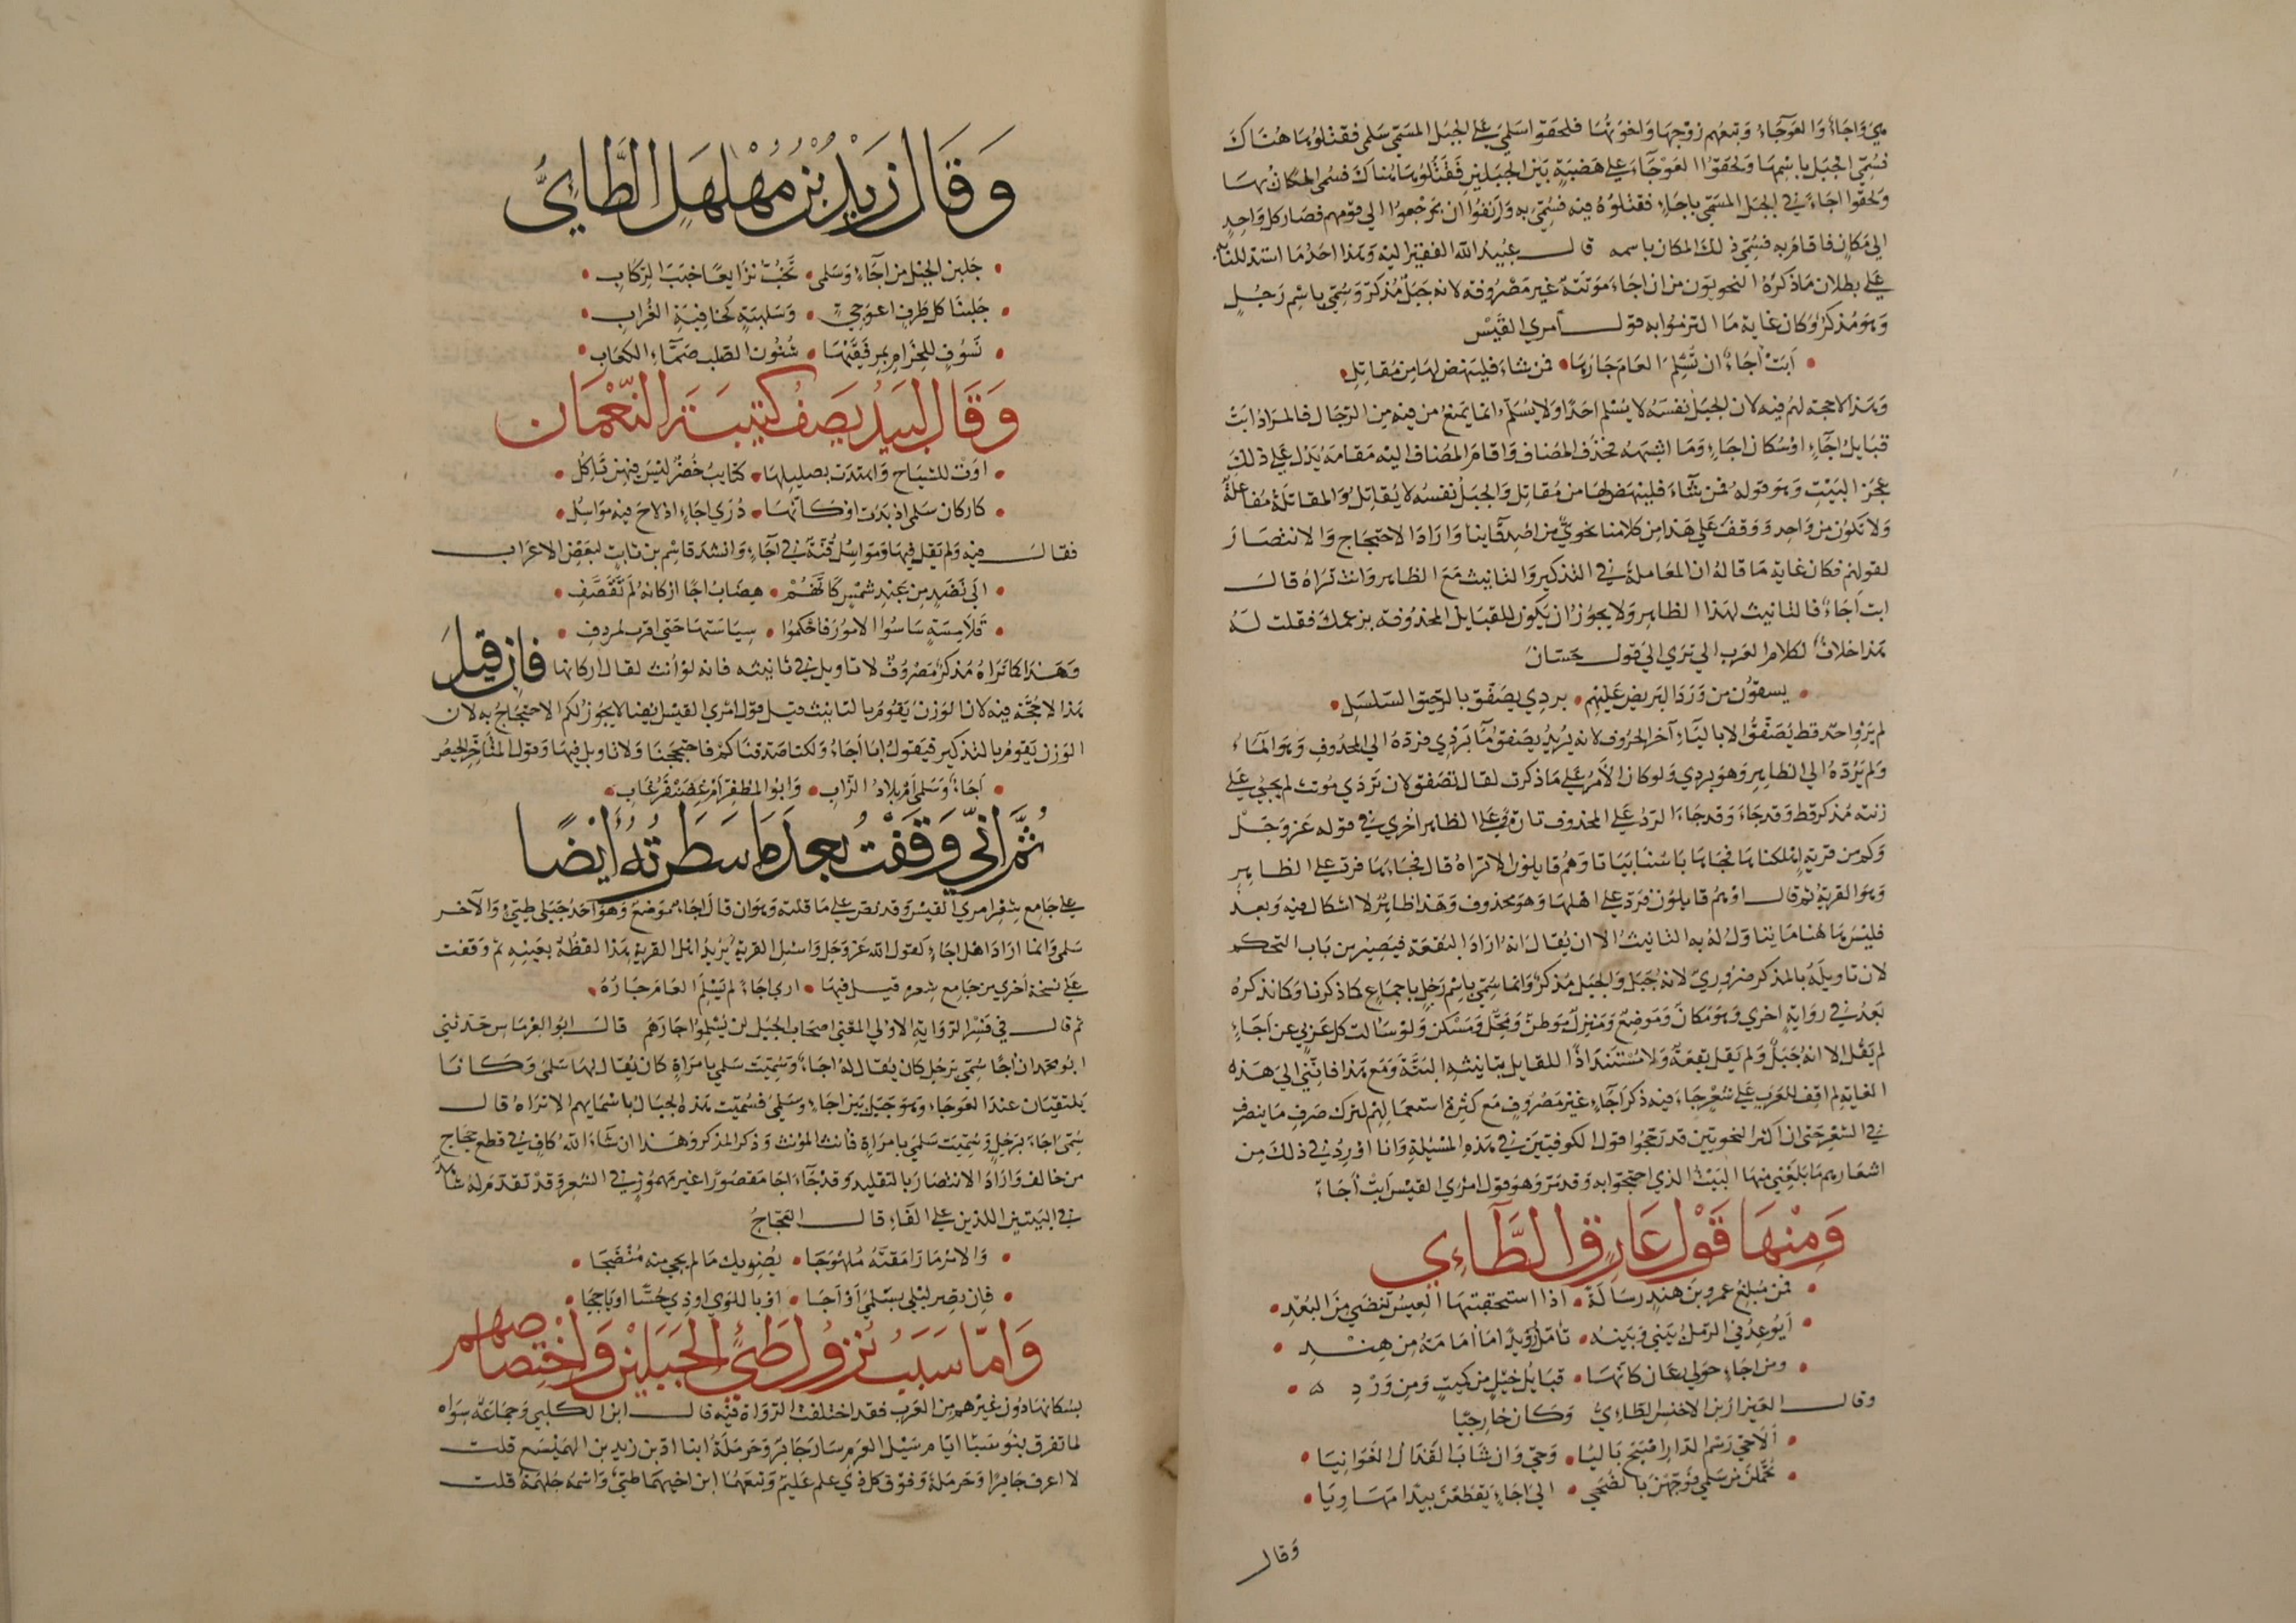 هي واجاء والعوجاء وتبعهم زوجها واخوتها فلحقوا سلمى على الجبل المسمى سلمى فقتلوها هناك
فسمي الجبل باسمها ولحقوا العوجاء على هضبة بين الجبلين فقتلوها هناك فسمى المكان بها
ولحقوا اجاء في الجبل المسمى باجاء فقتلوه فيه فسمي به وانفوا ان يرجعوا الي قومهم فصار كل واحد
الي مكان فاقام به فسمي ذلك المكان باسمه قال عبيد الله الفقير اليه وهذا احد ما استدللنا به
على بطلان ما ذكره النحويون من ان اجاء موتنة غير مصروفة لانه جبل مذكر وسمي باسم رجل
وهو مذكر وكان غاية ما التزموا به قول امري القيس
ابت اجاء ان تسلم العام جارها فمن شاء فلينهض لها من مقاتل
وهذا لا حجة لهم فيه لان الجبل نفسه لا يسلم احدا ولا يسلم انما يمنع من فيه من الرجال فالمراد ابت
قبايل اجاء او سكان اجاء وما اشبهه فحذف المضاف واقام المضاف اليه مقامه يدل على ذلك
عجز البيت وهو قوله فمن شاء فلينهض لها من مقاتل والجبل نفسه لا يقاتل والمقاتلة مفاعلة
ولا تكون من واحد ووقف على هذا من كلامنا نحوي من اصدقاينا واراد الاحتجاج والانتصار
لقولهم فكان غاية ما قاله ان المعاملة في التذكير والتانيث مع الظاهر وانت تراه قال
ابت اجاء فالتانيث لهذا الظاهر ولا يجوز ان يكون للقبايل المحذوفة بزعمك فقلت له
هذا خلاف لكلام العرب الي تري الي قول حسان
يسقون من ورد البريص عليهم بردي يصفق بالرحيق السلسل
لم يرو احد قط يصفق الا بالياء آخر الحروف لانه يريد يصفق ماء بردي فرده الي المحذوف وهو الماء
ولم يرده الي الظاهر وهو بردي ولو كان الامر على ما ذكرت لقال تصفق لان بردي مونث لم يجئ على
زنته مذكر قط وقد جاء وقد جاء الرد على المحذوف تارة وعلى الظاهر اخري في قوله عز وجل
وكم من قرية اهلكناها فجاها باسنا بياتا وهم قايلون الا تراه قال فجاءها فرد على الظاهر
وهو القرية ثم قال او هم قايلون فرد على اهلها وهو محذوف وهذا ظاهر لا اشكال فيه وبعد
فليس هاهنا ما يتاول له به التانيث الا ان يقال انه اراد البقعة فيصير من باب التحكم
لان تاويله بالمذكر ضروري لانه جبل والجبل مذكر وانما سمي باسم رجل باجماع كما ذكرنا وكما نذكره
بعد في رواية اخري وهو مكان وموضع ومنزل وموطن ومحل ومسكن ولو سالت كل عربي عن اجاء
لم يقل الا انه جبل ولم يقل بقعة ولا مستند اذا للقايل بتانيثه البتة ومع هذا فانني الي هذه
الغاية لم اقف للعرب على شعر جاء فيه ذكر اجاء غير مصروف مع كثرة استعمالهم لترك صرف ما ينصرف
في الشعر حتي ان اكثر النحويين قد رجحوا قول الكوفيين في هذه المسئلة وانا اورد في ذلك من
اشعارهم ما بلغني منها البيت الذي احتجوا به وقد مر وهو قول امري القيس ابت اجاء
ومنها قول عارق الطاءي
فمن مبلغ عمرو بن هند رسالة اذا استحقبتها العيس تنضي من البعد
ايوعدني والرمل بيني وبينه تامل رويدا ما امامة من هند
ومن اجاء حولي رعان كانها قبايل خيل من كميت ومن ورد
وقال العيزار بن الاخنس الطاءي وكان خارجيا
الا حي رسم الدار اصبح باليا وحي وان شاب القذال الغوانيا
تحملن من سلمى فوجهن بالضحي الي اجاء يقطعن بيدا مهاويا
وقال
وقال زيد بن مهلهل الطائي
جلبن الخيل من اجاء وسلمى تخب نزايعا خبب الركاب
جلبنا كل طرف اعوجي وسلهبة كخافية الغراب
نسوف للحزام بمرفقيها شنون الصلب صماء الكعاب
وقال لبيد يصف كتيبة النعمان
اوت للشياح واهتدت بصليلها كتايب خضر ليس فيهن ناكل
كاركان سلمى اذ بدت او كانها ذري اجاء اذ لاح فيه مواسل
فقال فيه ولم يقل فيها ومواسل قنة في اجاء وانشد قاسم بن ثابت لبعض الاعراب
الي نضد من عبد شمس كانهم هضاب اجا اركانه لم تقصف
قلامسة ساسوا الامور فاحكموا سياستها حتي اقرت لمردف
وهذا كما تراه مذكر مصروف لا تاويل في تانيثه فانه لو انث لقال اركانها فان قيل
هذا لا حجة فيه لان الوزن يقوم بالتانيث قيل قول امري القيس ايضا لا يجوز لكم الاحتجاج به لان
الوزن يقوم بالتذكير فيقول ابا اجاء ولكنا صدقناكم فاحتججنا ولا تاويل فيها وقول المتاخر الحيص
اجاء وسلمى ام بلاد الزاب وابو المظفر ام غضنفر غاب
ثم اني وقفت بعد ما سطرته ايضا
على جامع شعر امري القيس وقد نص على ما قلته وهو ان قال اجاء موضع وهو احد جبلي طيئ والآخر
سلمى وانما اراد اهل اجاء كقول الله عز وجل واسئل القرية يريد اهل القرية هذا لفظه بعينه ثم وقفت
على نسخة اخري من جامع شعره قيل فيها اري اجاء لم يسلم العام جاره
ثم قال في فسر الرواية الاولي المعني اصحاب الجبل لن يسلموا جارهم قال ابو العرماس حدثني
ابو محمد ان اجا سمي برجل كان يقال له اجاء وسميت سلمي بامراة كان يقال لها سلمى وكانا
يلتقيان عند العوجاء وهو جبل بين اجاء وسلمى فسميت هذه الجبال باسمايهم الا تراه قال
سمى اجاء برجل وسميت سلمى بامراة فانث المؤنث وذكر المذكر وهذا ان شاء الله كاف في قطع حجاج
من خالف واراد الانتصار بالتقليد وقد جاء اجا مقصورا غير مهموز في الشعر وقد تقدم له شاهد
في البيتين اللذين على الفاء قال العجاج
والامر ما رامقته ملهوجا يضويك ما لم يجي منه منضجا
فان يصر ليلي بسلمى او اجا او باللوي او ذي حسا او ياججا
واما سبب نزول طيئ الجبلين واختصاصهم
بسكانها دون غيرهم من العرب فقد اختلفت الرواة فيه قال ابن الكلبي وجماعة سواه
لما تفرق بنو سبا ايام سيل العرم سار جابر وحرملة ابنا ادد بن زيد بن الهميسع قلت
لا اعرف جابرا وحرملة وفوق كل ذي علم عليم وتبعهما ابن اخيهما طيئ واسمه جلهمة قلت